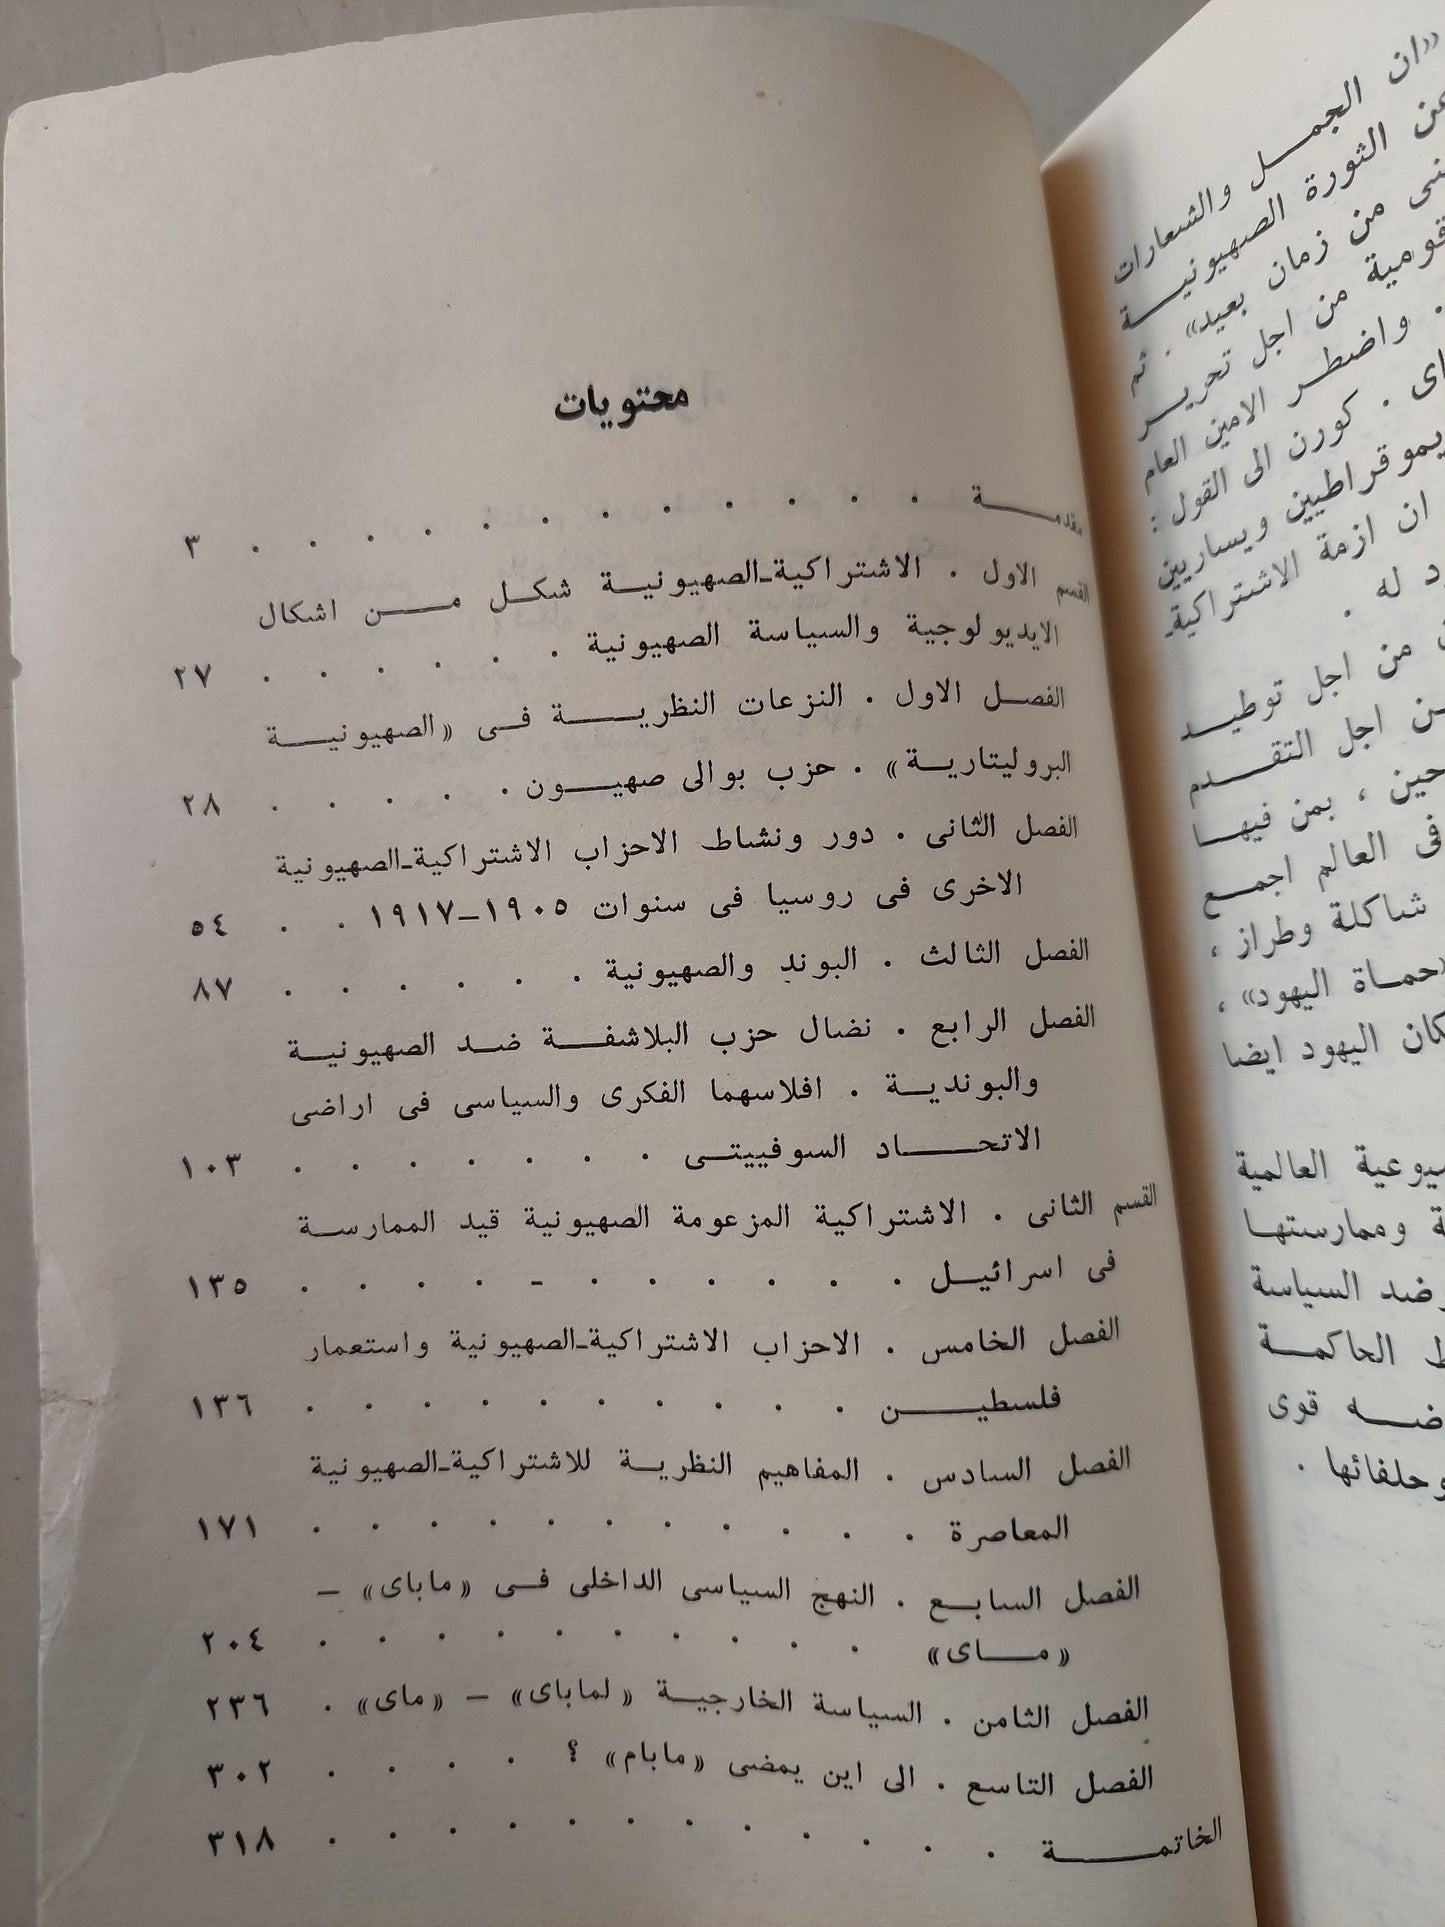 محتويات
مقدمـــة . . . . . . . . . . . . ٣
القسم الاول . الاشتراكية ـ الصهيونيـة شكـل مـــن اشكال
الايديولوجية والسياسة الصهيونية . . . . . . ٢٧
الفصـل الاول . النزعات النظريـــة فـى «الصهيونيـــة
البروليتاريـة» . حزب بوالى صهيـــون . . . . . ٢٨
الفصل الثانى . دور ونشاط الاحزاب الاشتراكية ـ الصهيونية
الاخرى فى روسيا فى سنوات ١٩٠٥ـ١٩١٧ . . ٥٤
الفصل الثالث . البوند والصهيونية . . . . . . ٨٧
الفصل الرابع . نضال حزب البلاشفـــة ضـد الصهيونيـة
والبونديـة . افلاسهما الفكرى والسياسى فى اراضى
الاتحـــاد السوفييتـى . . . . . . . ١٠٣
القسم الثانى . الاشتراكية المزعومة الصهيونية قيد الممارسـة
فى اسرائيـل . . . . . . - . . . . ١٣٥
الفصل الخامس . الاحزاب الاشتراكية ـ الصهيونية واستعمار
فلسطيـــن . . . . . . . . . . ١٣٦
الفصل السادس . المفاهيم النظريـة للاشتراكية ـ الصهيونية
المعاصرة . . . . . . . . . . . ١٧١
الفصل السابـع . النهج السياسى الداخلى فـى «ماباى» –
«مـــاى» . . . . . . . . . . ٢٠٤
الفصل الثامن . السياسة الخارجيـة «لماباى» – «ماى» . ٢٣٦
الفصل التاسع . الى اين يمضى «مابام» ؟ . . . . ٣٠٢
الخاتمـــة . . . . . . . . . . . . ٣١٨
«ان الجمـــل والشعارات
الثورة الصهيونيـــة
من زمان بعيد» . ثم
من اجل تحريـر
. واضطـر الامين العام
. كورن الى القول :
ويساريين
ان ازمة الاشتراكية ـ
له .
من اجل توطيـد
اجل التقـــدم
، بمن فيهـا
فى العالم اجمـع
شاكلة وطراز ،
«حماة اليهود» ،
اليهود ايضا
العالمية
وممارستهـا
السياسة
الحاكمـــة
قوى
وحلفائها .